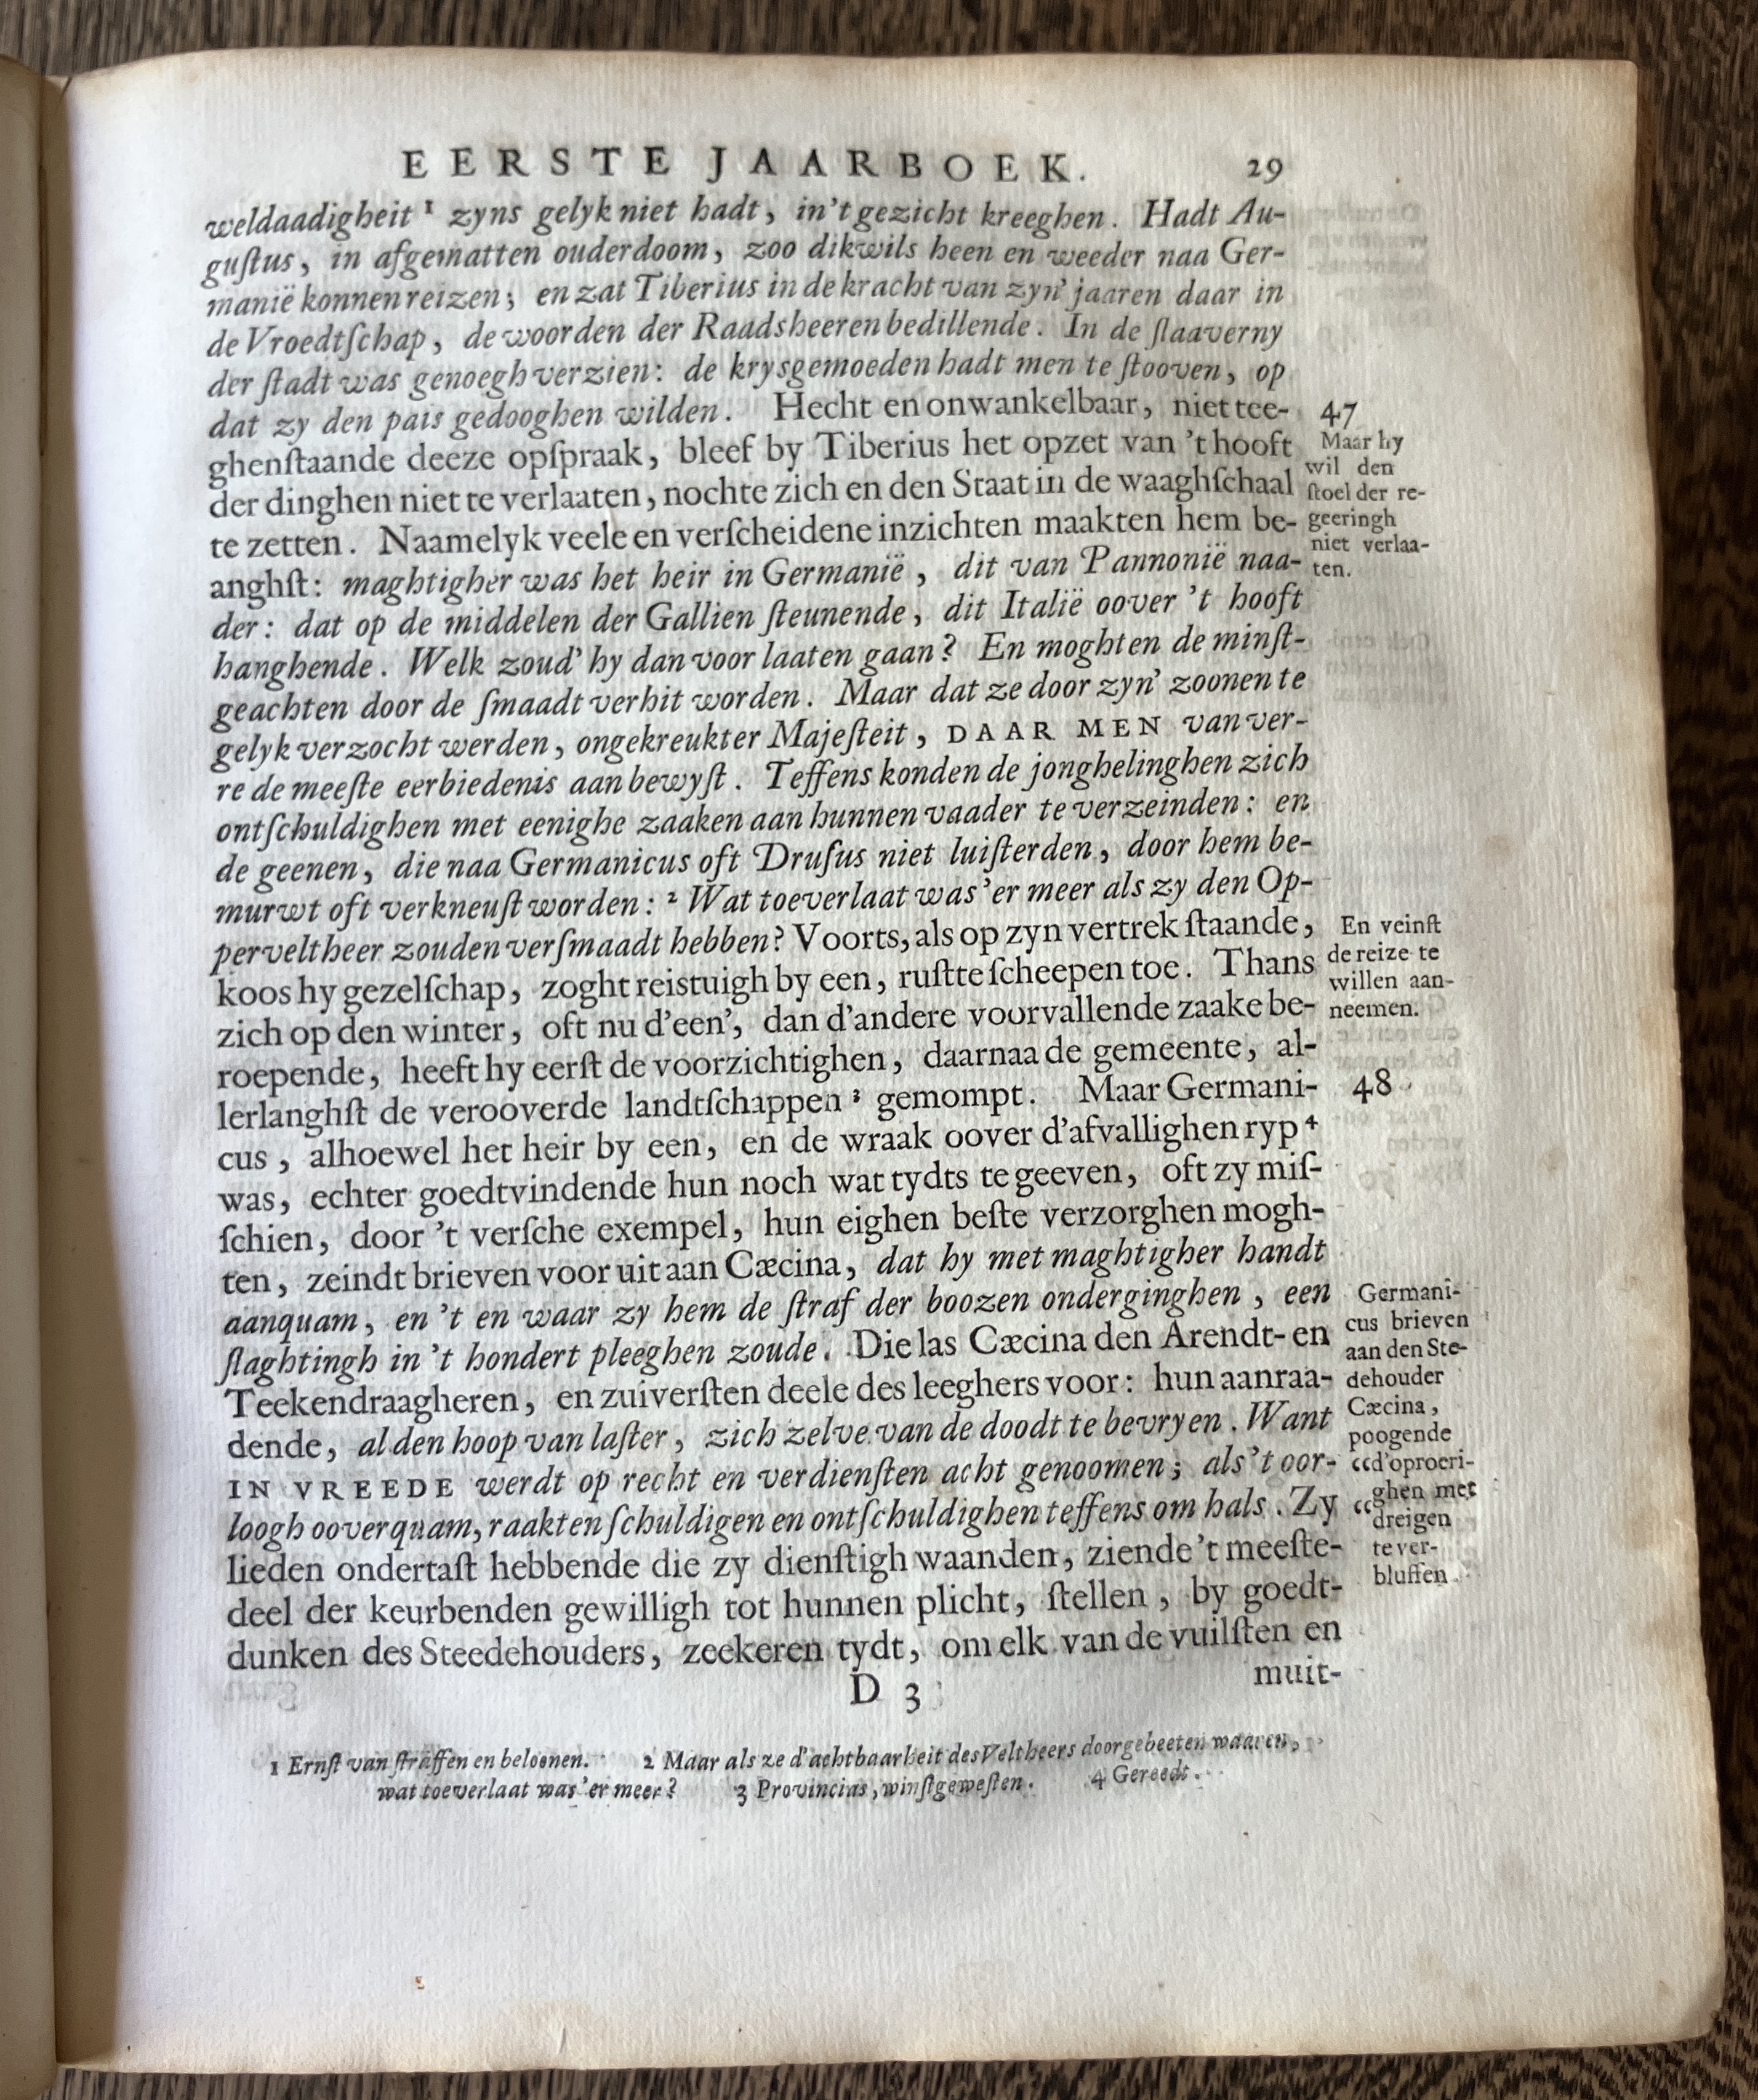 EERSTE JAARBOEK. 29
weldaadigheit ¹ zyns gelyk niet hadt, in't gezicht kreeghen. Hadt Au-
guſtus, in afgematten ouderdoom, zoo dikwils heen en weeder naa Ger-
manië konnen reizen; en zat Tiberius in de kracht van zyn' jaaren daar in
de Vroedtſchap, de woorden der Raadsheeren bedillende. In de ſlaaverny
der ſtadt was genoegh verzien: de krysgemoeden hadt men te ſtooven, op
dat zy den pais gedooghen wilden. Hecht en onwankelbaar, niet tee-
ghenſtaande deeze opſpraak, bleef by Tiberius het opzet van 't hooft
der dinghen niet te verlaaten, nochte zich en den Staat in de waaghſchaal
te zetten. Naamelyk veele en verſcheidene inzichten maakten hem be-
anghſt: maghtigher was het heir in Germanië, dit van Pannonië naa-
der: dat op de middelen der Gallien ſteunende, dit Italië oover 't hooft
hanghende. Welk zoud' hy dan voor laaten gaan? En moghten de minſt-
geachten door de ſmaadt verhit worden. Maar dat ze door zyn' zoonen te
gelyk verzocht werden, ongekreukter Majeſteit, DAAR MEN van ver-
re de meeſte eerbiedenis aan bewyſt. Teffens konden de jonghelinghen zich
ontſchuldighen met eenighe zaaken aan hunnen vaader te verzeinden: en
de geenen, die naa Germanicus oft Druſus niet luiſterden, door hem be-
murwt oft verkneuſt worden: ² Wat toeverlaat was'er meer als zy den Op-
perveltheer zouden verſmaadt hebben? Voorts, als op zyn vertrek ſtaande,
koos hy gezelſchap, zoght reistuigh by een, ruſtte ſcheepen toe. Thans
zich op den winter, oft nu d'een', dan d'andere voorvallende zaake be-
roepende, heeft hy eerſt de voorzichtighen, daarnaa de gemeente, al-
lerlanghſt de verooverde landtſchappen ³ gemompt. Maar Germani-
cus, alhoewel het heir by een, en de wraak oover d'afvallighen ryp ⁴
was, echter goedtvindende hun noch wat tydts te geeven, oft zy miſ-
ſchien, door 't verſche exempel, hun eighen beſte verzorghen mogh-
ten, zeindt brieven voor uit aan Cæcina, dat hy met maghtigher handt
aanquam, en 't en waar zy hem de ſtraf der boozen onderginghen, een
ſlaghtingh in 't hondert pleeghen zoude. Die las Cæcina den Arendt- en
Teekendraagheren, en zuiverſten deele des leeghers voor: hun aanraa-
dende, al den hoop van laſter, zich zelve van de doodt te bevryen. Want
IN VREEDE werdt op recht en verdienſten acht genoomen; als 't oor-
loogh ooverquam, raakten ſchuldigen en ontſchuldighen teffens om hals. Zy
lieden ondertaſt hebbende die zy dienſtigh waanden, ziende 't meeſte-
deel der keurbenden gewilligh tot hunnen plicht, ſtellen, by goedt-
dunken des Steedehouders, zeekeren tydt, om elk van de vuilſten en
D 3 muit-
47
Maar hy
wil den
ſtoel der re-
geeringh
niet verlaa-
ten.
En veinſt
de reize te
willen aan-
neemen.
48
Germani-
cus brieven
aan den Ste-
dehouder
Cæcina,
poogende
“d'oproeri-
ghen met
“dreigen
te ver-
bluffen.
1 Ernſt van ſtraffen en beloonen. 2 Maar als ze d'achtbaarheit des Veltheers doorgebeeten waaren,
wat toeverlaat was'er meer? 3 Provincias, winſtgeweſten. 4 Gereedt.